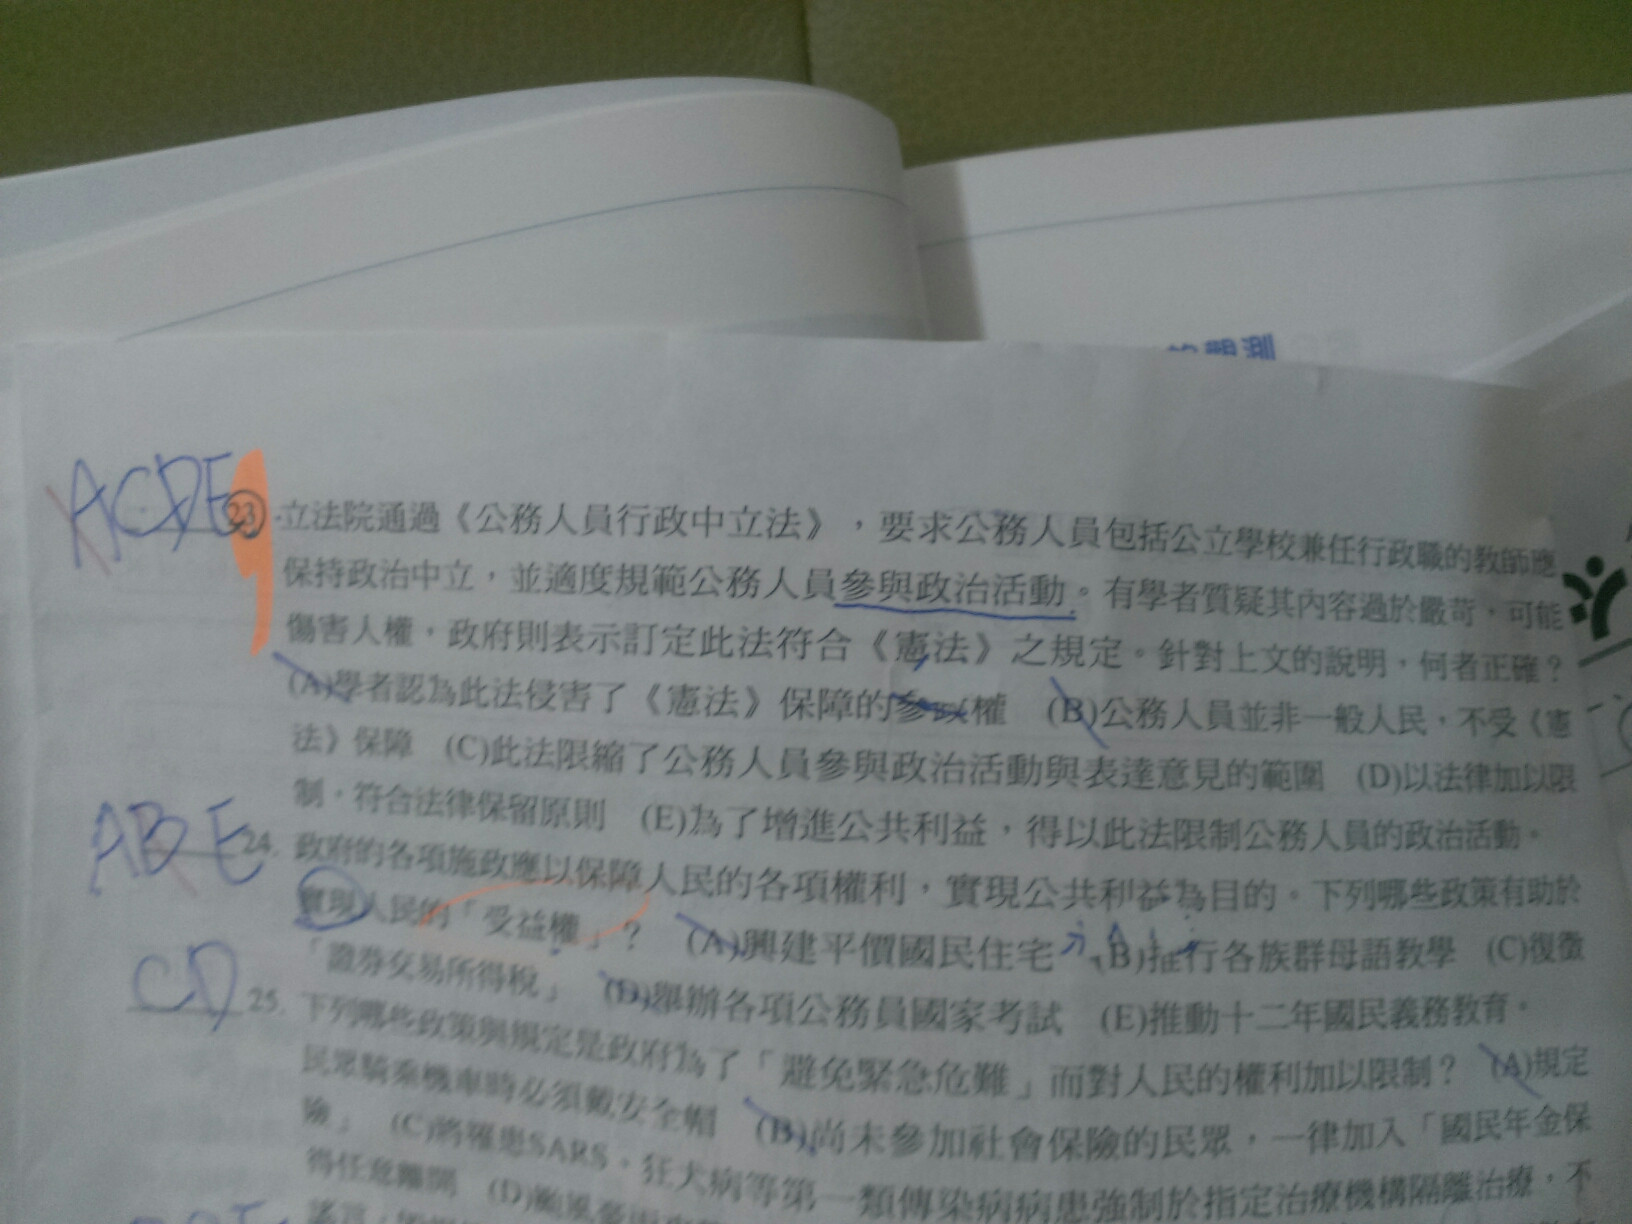 ACDE 23. 立法院通過《公務人員行政中立法》，要求公務人員包括公立學校兼任行政職的教師應
保持政治中立，並適度規範公務人員參與政治活動。有學者質疑其內容過於嚴苛，可能
傷害人權，政府則表示訂定此法符合《憲法》之規定。針對上文的說明，何者正確？
(A)學者認為此法侵害了《憲法》保障的參政權 (B)公務人員並非一般人民，不受《憲
法》保障 (C)此法限縮了公務人員參與政治活動與表達意見的範圍 (D)以法律加以限
制，符合法律保留原則 (E)為了增進公共利益，得以此法限制公務人員的政治活動。
ABE 24. 政府的各項施政應以保障人民的各項權利，實現公共利益為目的。下列哪些政策有助於
實現人民的「受益權」？ (A)興建平價國民住宅 (B)推行各族群母語教學 (C)復徵
「證券交易所得稅」 (D)舉辦各項公務員國家考試 (E)推動十二年國民義務教育。
CD 25. 下列哪些政策與規定是政府為了「避免緊急危難」而對人民的權利加以限制？ (A)規定
民眾騎乘機車時必須戴安全帽 (B)尚未參加社會保險的民眾，一律加入「國民年金保
險」 (C)將罹患SARS、狂犬病等第一類傳染病病患強制於指定治療機構隔離治療，不
得任意離開 (D)颱風